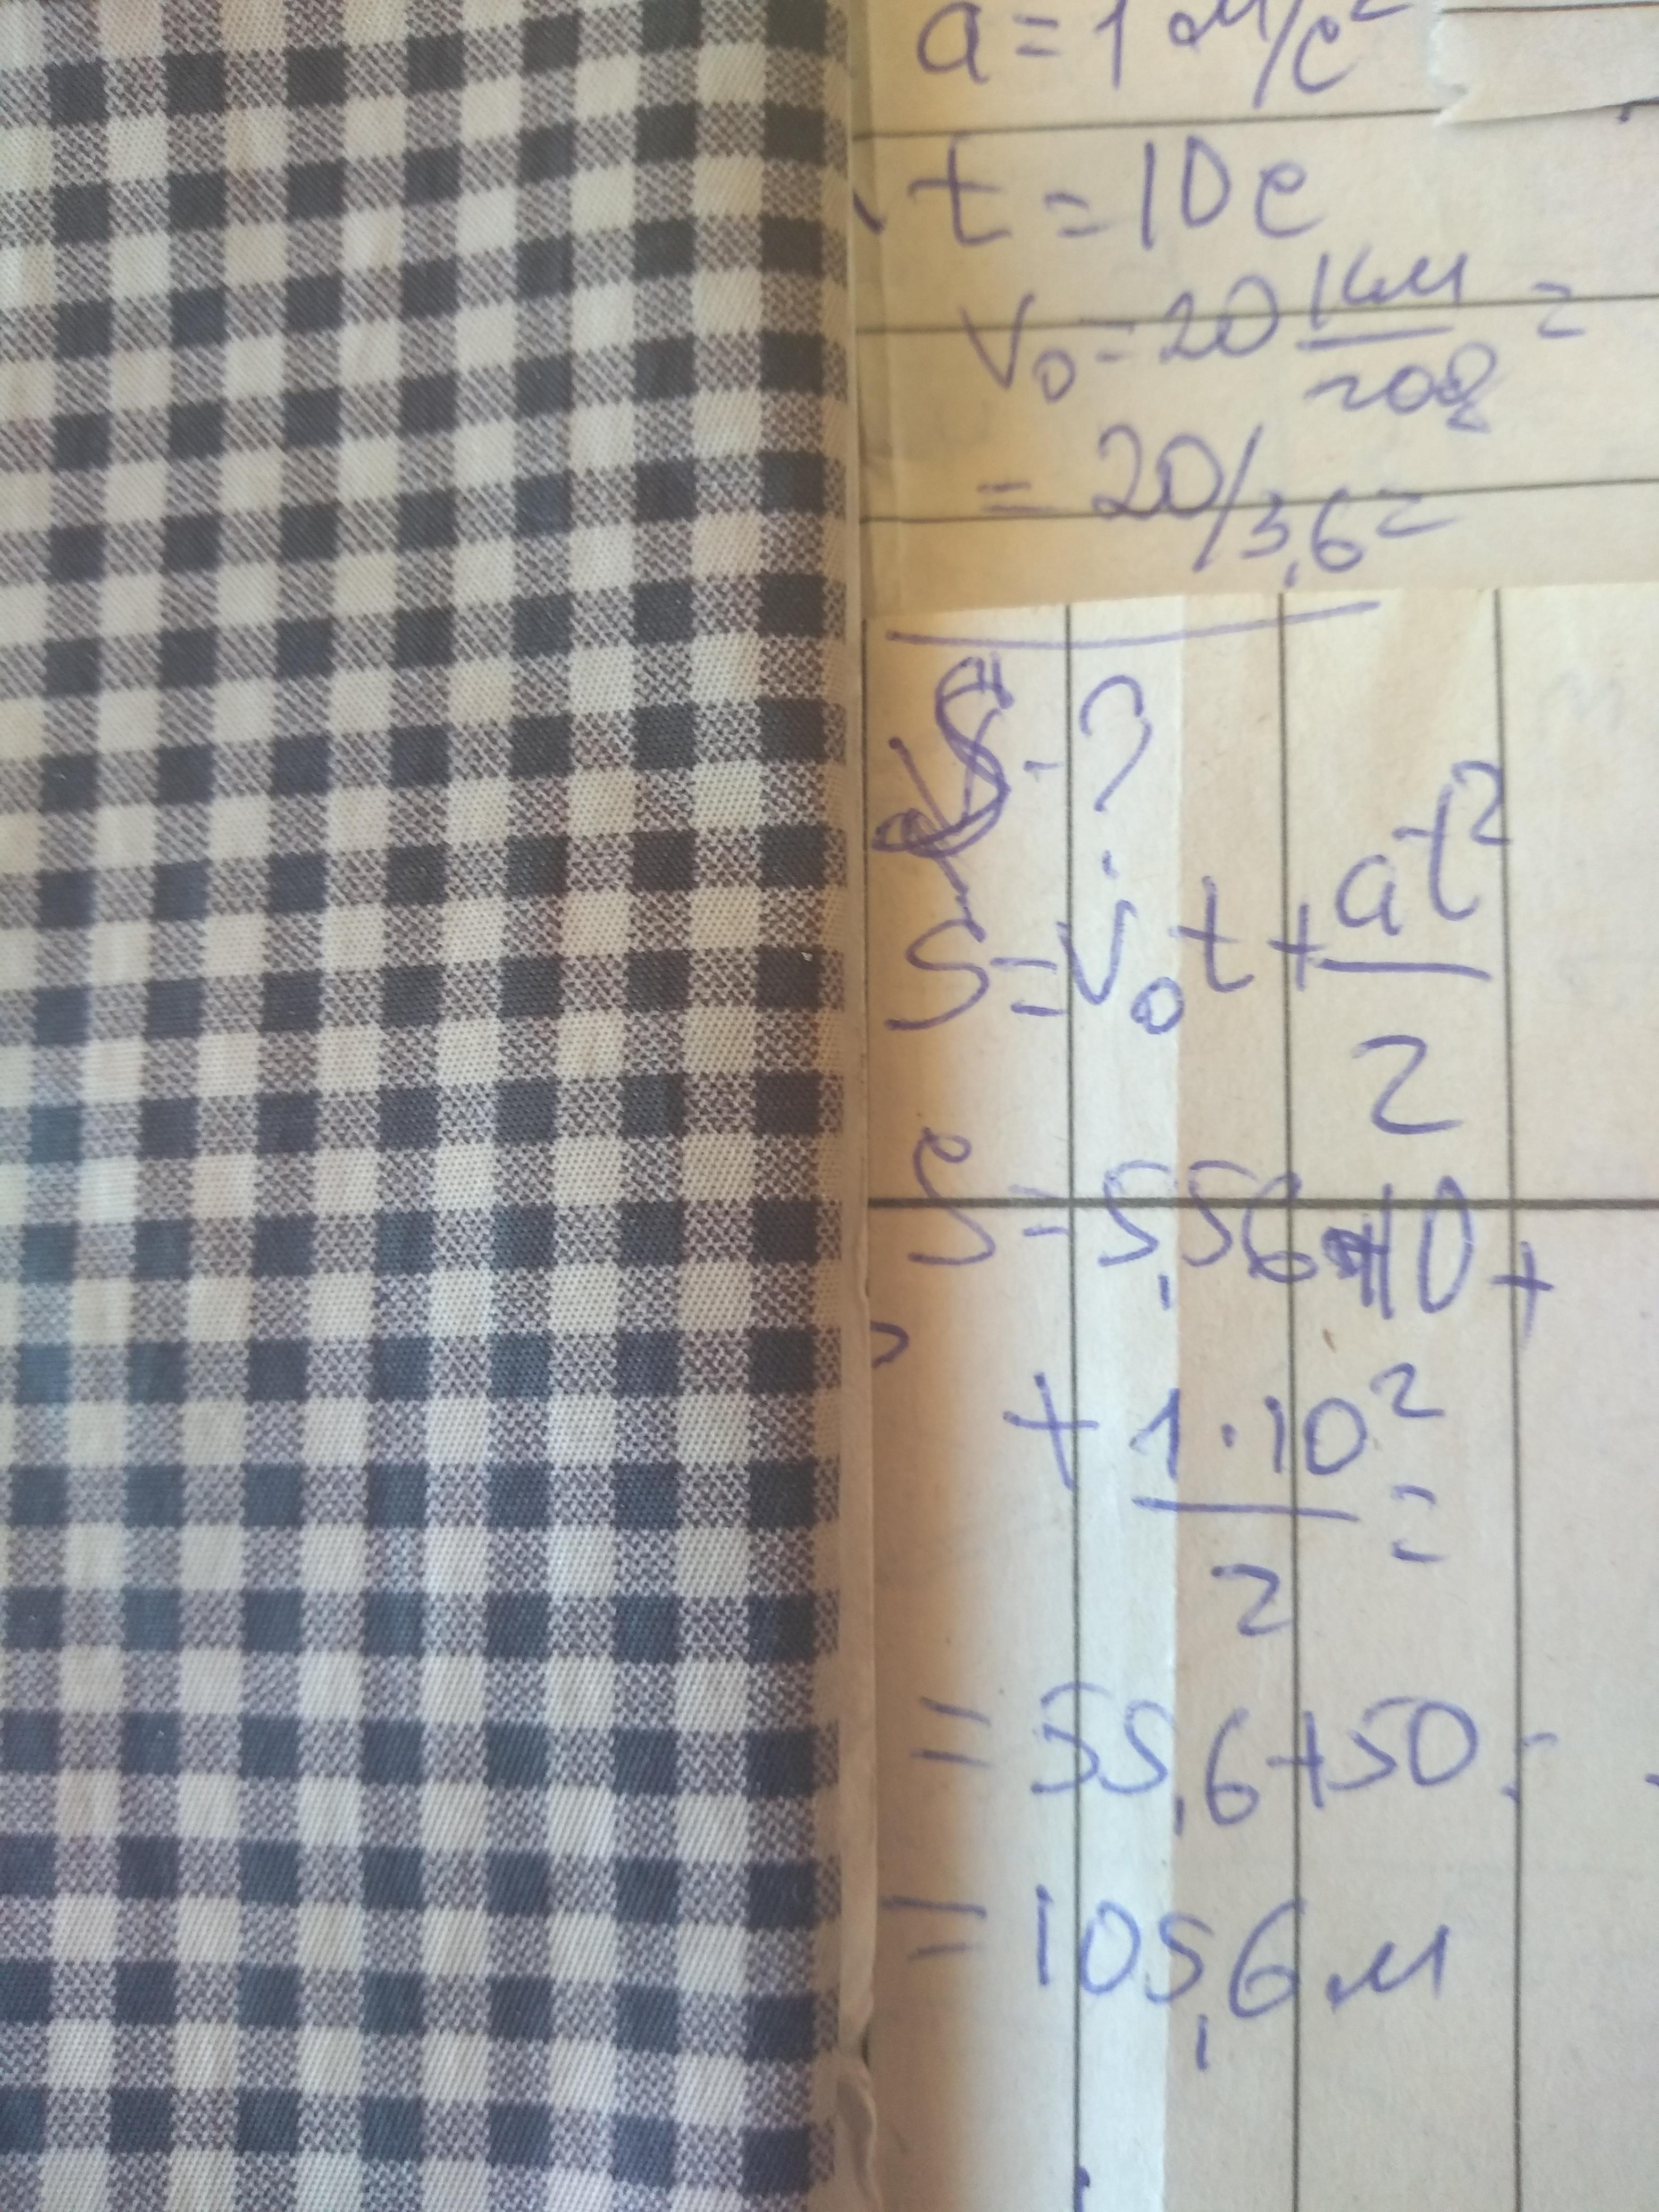 a = 1 м/с²
t = 10 с
V₀ = 20 км/год =
= 20/3,6 =
S - ?
S = V₀t + at²/2
S = 5,56·10 +
+ 1·10²/2 =
= 55,6 + 50 =
= 105,6 м